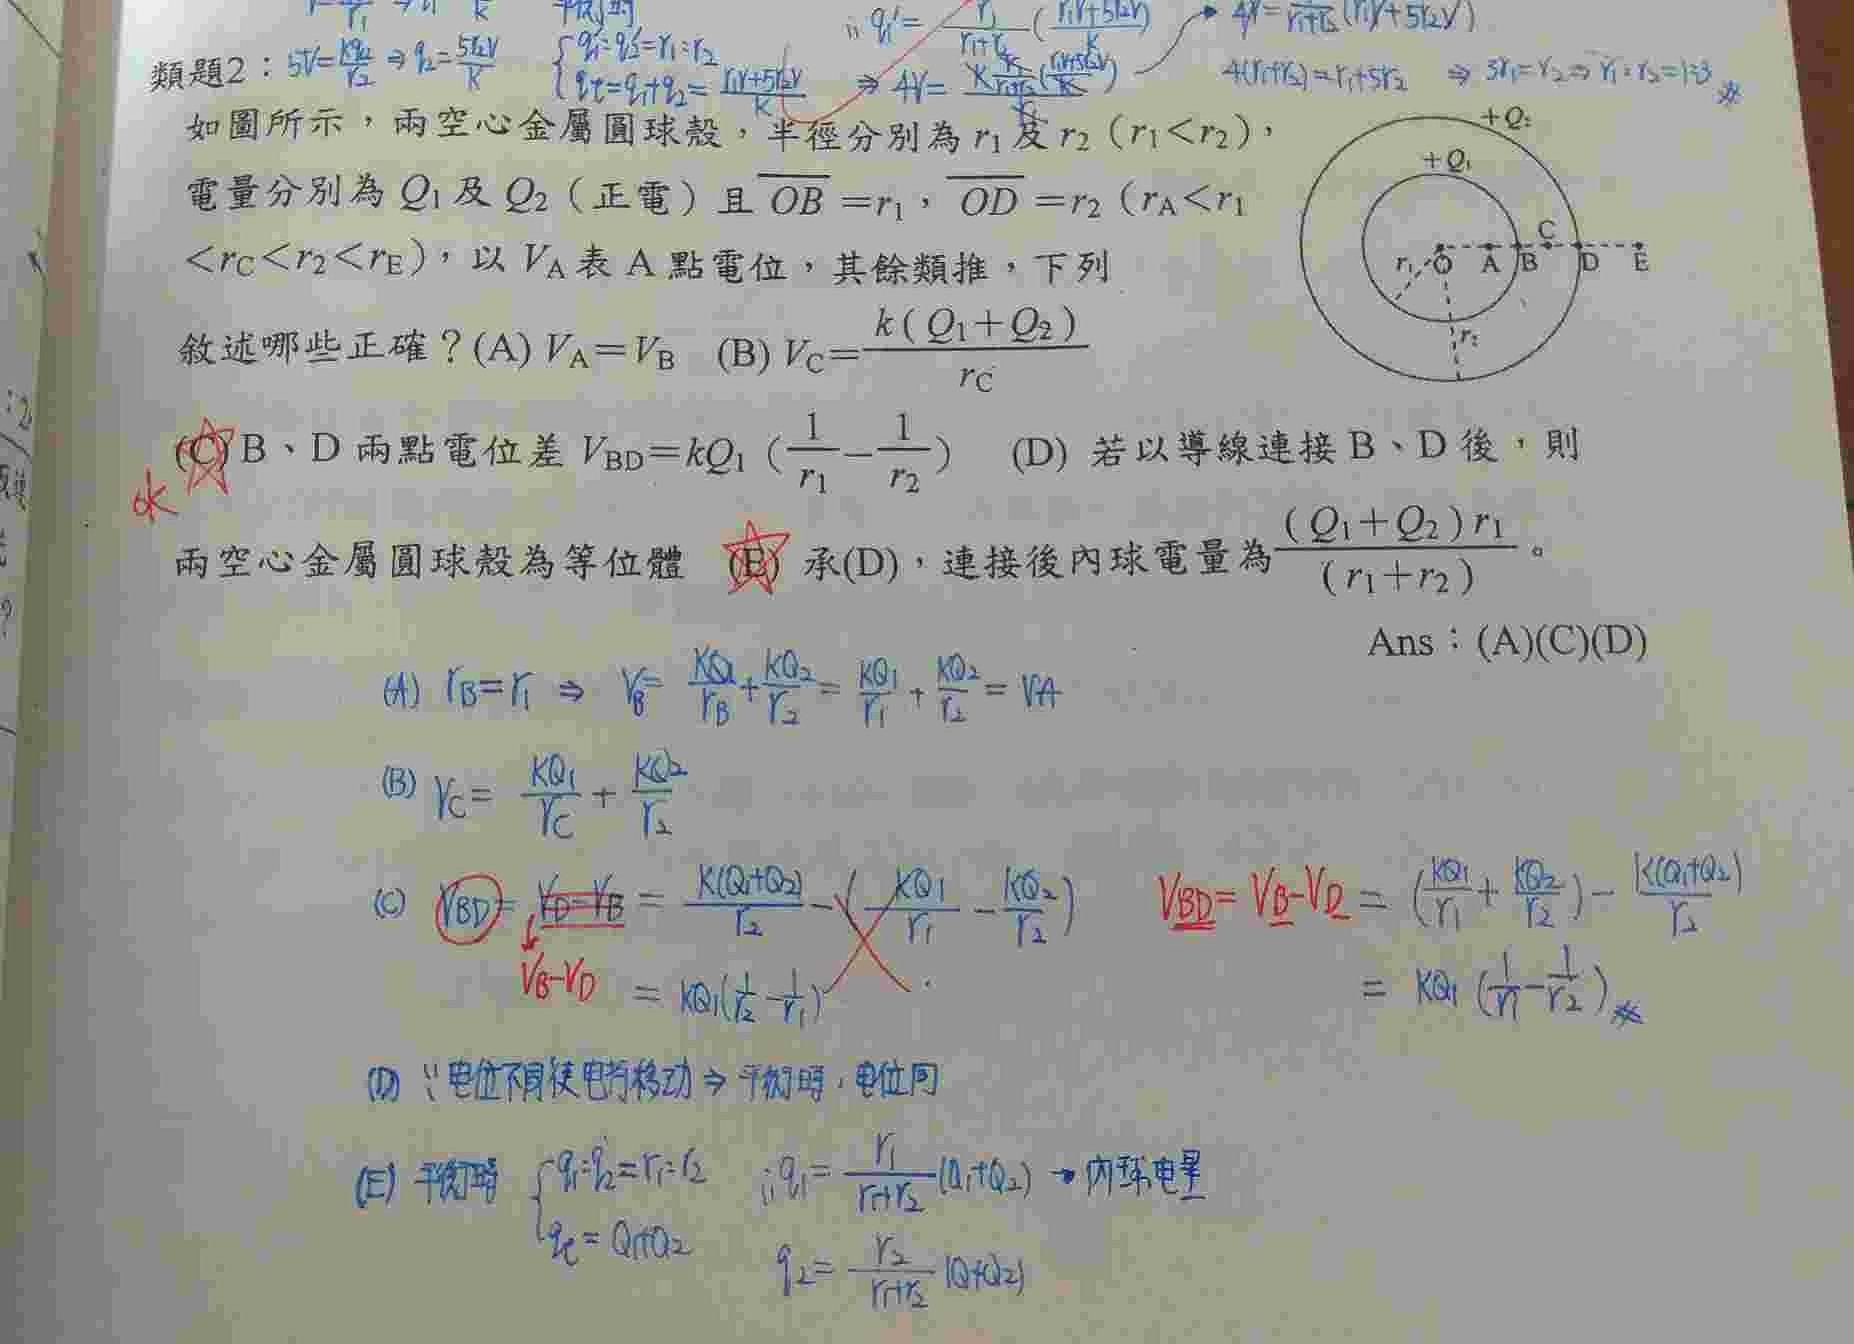 類題2：5V=kq2/r2 ⇒ q2=5r2V/k
{q1':q2'=r1:r2
qt=q1+q2=(r1V+5r2V)/k
4(r1+r2)=r1+5r2 ⇒ 3r1=r2 ⇒ r1:r2=1:3
如圖所示，兩空心金屬圓球殼，半徑分別為 r1 及 r2（r1<r2），
電量分別為 Q1 及 Q2（正電）且 OB =r1， OD =r2（rA<r1
<rC<r2<rE），以 VA 表 A 點電位，其餘類推，下列
敘述哪些正確？(A) VA=VB (B) VC=k(Q1+Q2)/rC
(C) B、D 兩點電位差 VBD=kQ1（1/r1−1/r2） (D) 若以導線連接 B、D 後，則
兩空心金屬圓球殼為等位體 (E) 承(D)，連接後內球電量為(Q1+Q2)r1/(r1+r2)。
Ans：(A)(C)(D)
+Q2
+Q1
C
r1 O A B D E
r2
(A) rB=r1 ⇒ VB= KQ1/rB+KQ2/r2=KQ1/r1+KQ2/r2=VA
(B) VC= KQ1/rC+KQ2/r2
(C) VBD=VD-VB= K(Q1+Q2)/r2-(KQ1/r1-KQ2/r2)
VB-VD
= KQ1(1/r2-1/r1)
VBD=VB-VD=(KQ1/r1+KQ2/r2)-K(Q1+Q2)/r2
= KQ1(1/r1-1/r2)
(D) ∵电位不同使电荷移动⇒平衡時，电位同
(E) 平衡時 {q1:q2=r1:r2 ∴q1=r1/(r1+r2)(Q1+Q2) → 內球电量
qt=Q1+Q2
q2=r2/(r1+r2)(Q1+Q2)